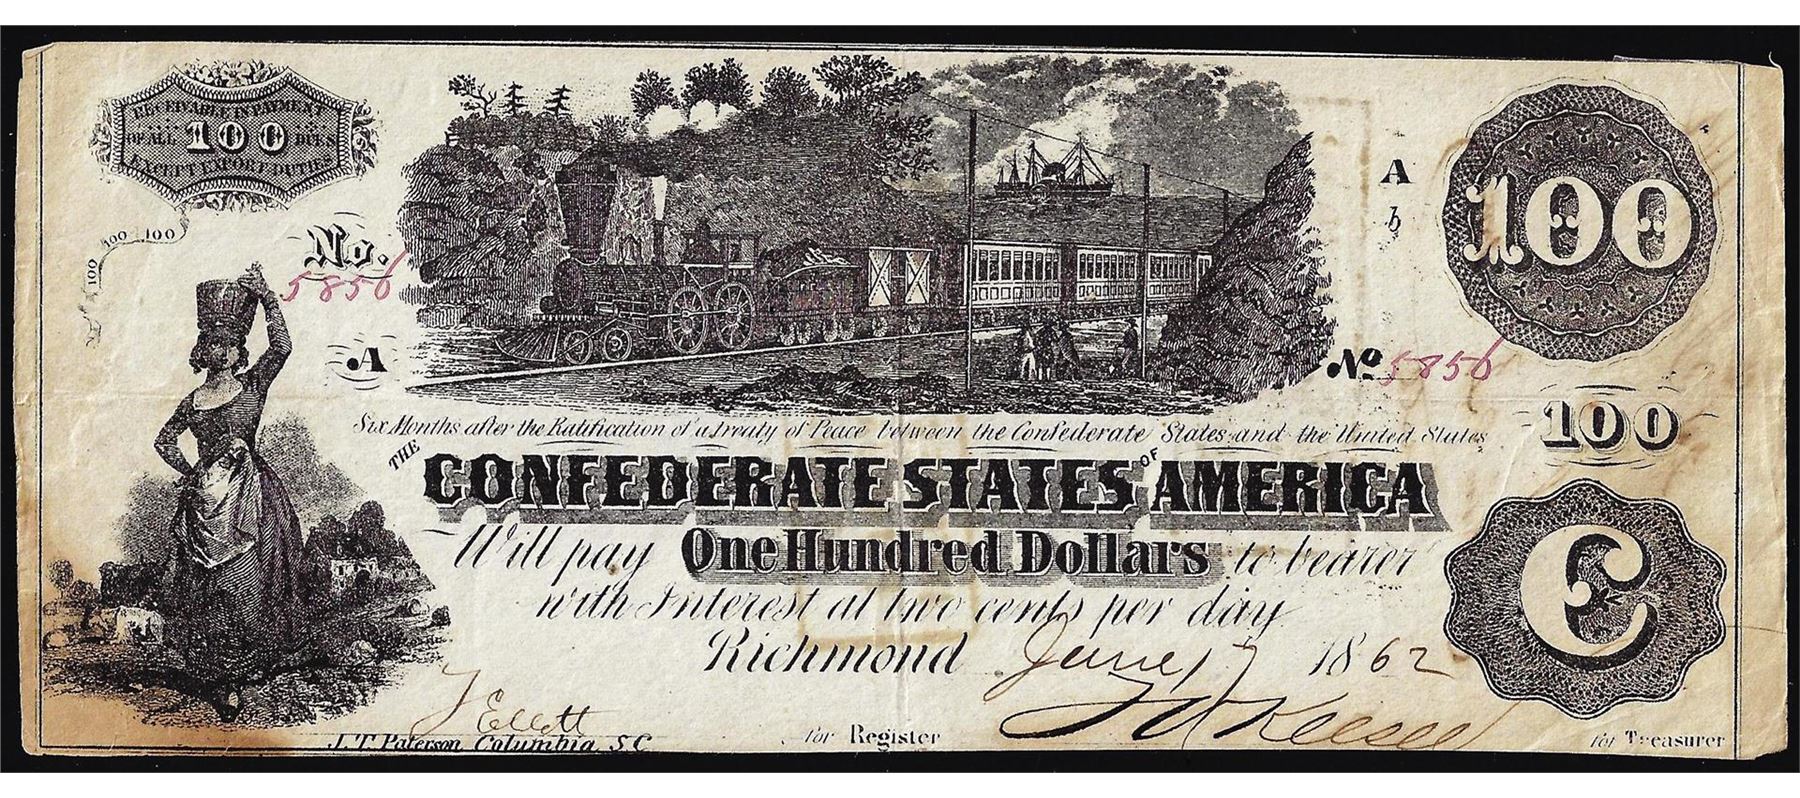 RECEIVABLE IN PAYMENT
OF ALL 100 DUES
EXCEPT EXPORT DUTIES
100 100
100
No.
5856
A
A
h
100
No 5856
100
Six Months after the Ratification of a treaty of Peace between the Confederate States and the United States
THE CONFEDERATE STATES OF AMERICA
Will pay One Hundred Dollars to bearer
with Interest at two cents per day
Richmond June 17 1862
C
J Ellett
J.T. Paterson Columbia S.C
for Register
for Treasurer